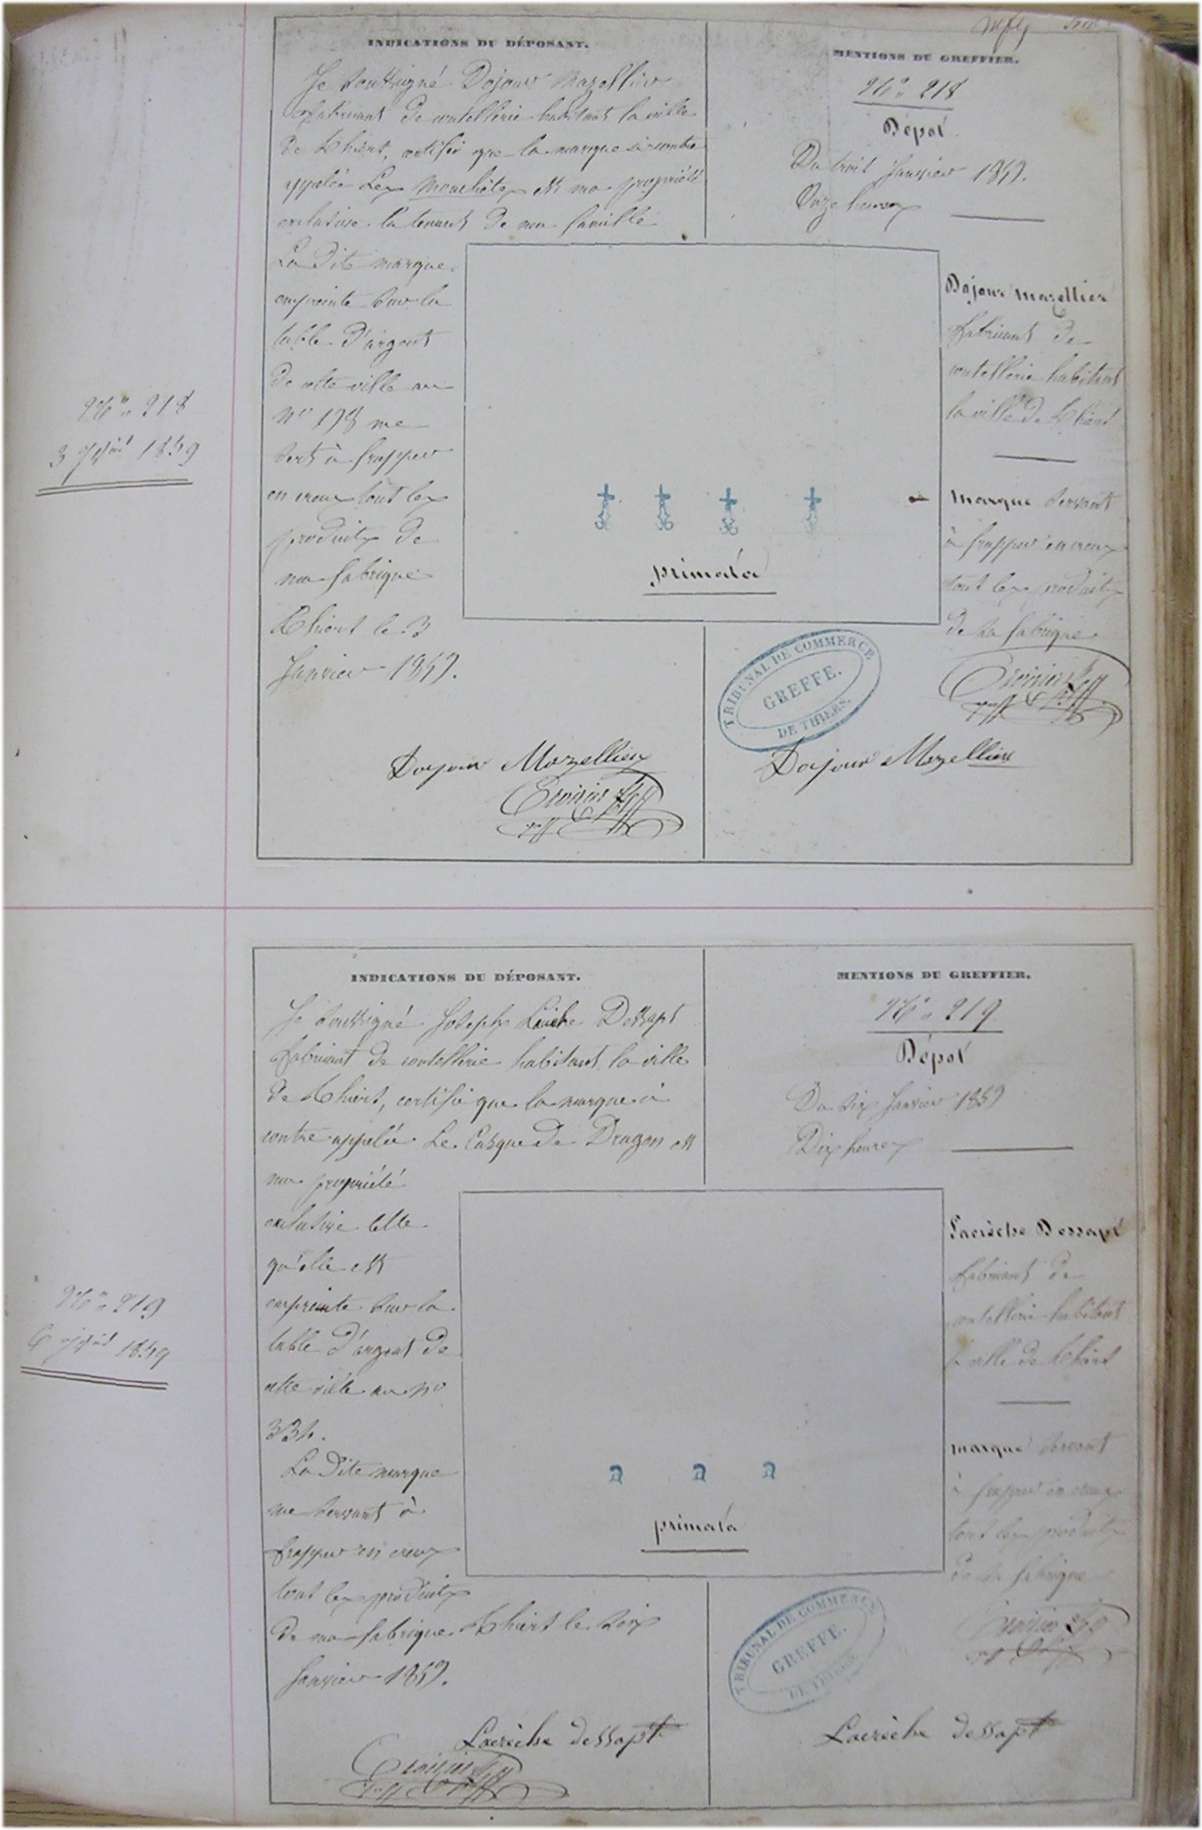 INDICATIONS DU DÉPOSANT.
Je soussigné Dojour Mazellier
fabricant de coutellerie habitant la ville
de Thiers, certifie que la marque ci contre
appelée Les Mouchettes est ma propriété
exclusive la tenant de ma famille
La dite marque
empreinte sur la
table d'argent
de cette ville au
No 178 me
sert à frapper
en creux tout les
produits de
ma fabrique
Thiers le 3
Janvier 1859.
Dojour Mazellier
MENTIONS DU GREFFIER.
No 218
Dépot
Du trois Janvier 1859.
Onze heures
Dojour Mazellier
fabricant de
coutellerie habitant
la ville de Thiers
marque servant
à frapper en creux
tout les produits
de sa fabrique
Dojour Mazellier
primata
TRIBUNAL DE COMMERCE
GREFFE.
DE THIERS.
No 218
3 1859
INDICATIONS DU DÉPOSANT.
Je soussigné Joseph Lacroche Dessapt
fabricant de coutellerie habitant la ville
de Thiers, certifie que la marque ci
contre appelée Le Casque de Dragon est
ma propriété
exclusive telle
qu'elle est
empreinte sur la
table d'argent de
cette ville au No
334.
La dite marque
me servant à
frapper en creux
tout les produits
de ma fabrique Thiers le six
Janvier 1859.
Lacrèche dessapt
MENTIONS DU GREFFIER.
No 219
Dépot
Du six Janvier 1859
Dix heures
Lacrèche Dessapt
fabricant de
coutellerie habitant
la ville de Thiers
marque servant
à frapper en creux
tout les produits
de sa fabrique
Lacrèche dessapt
primata
TRIBUNAL DE COMMERCE
GREFFE.
DE THIERS.
No 219
6 1859